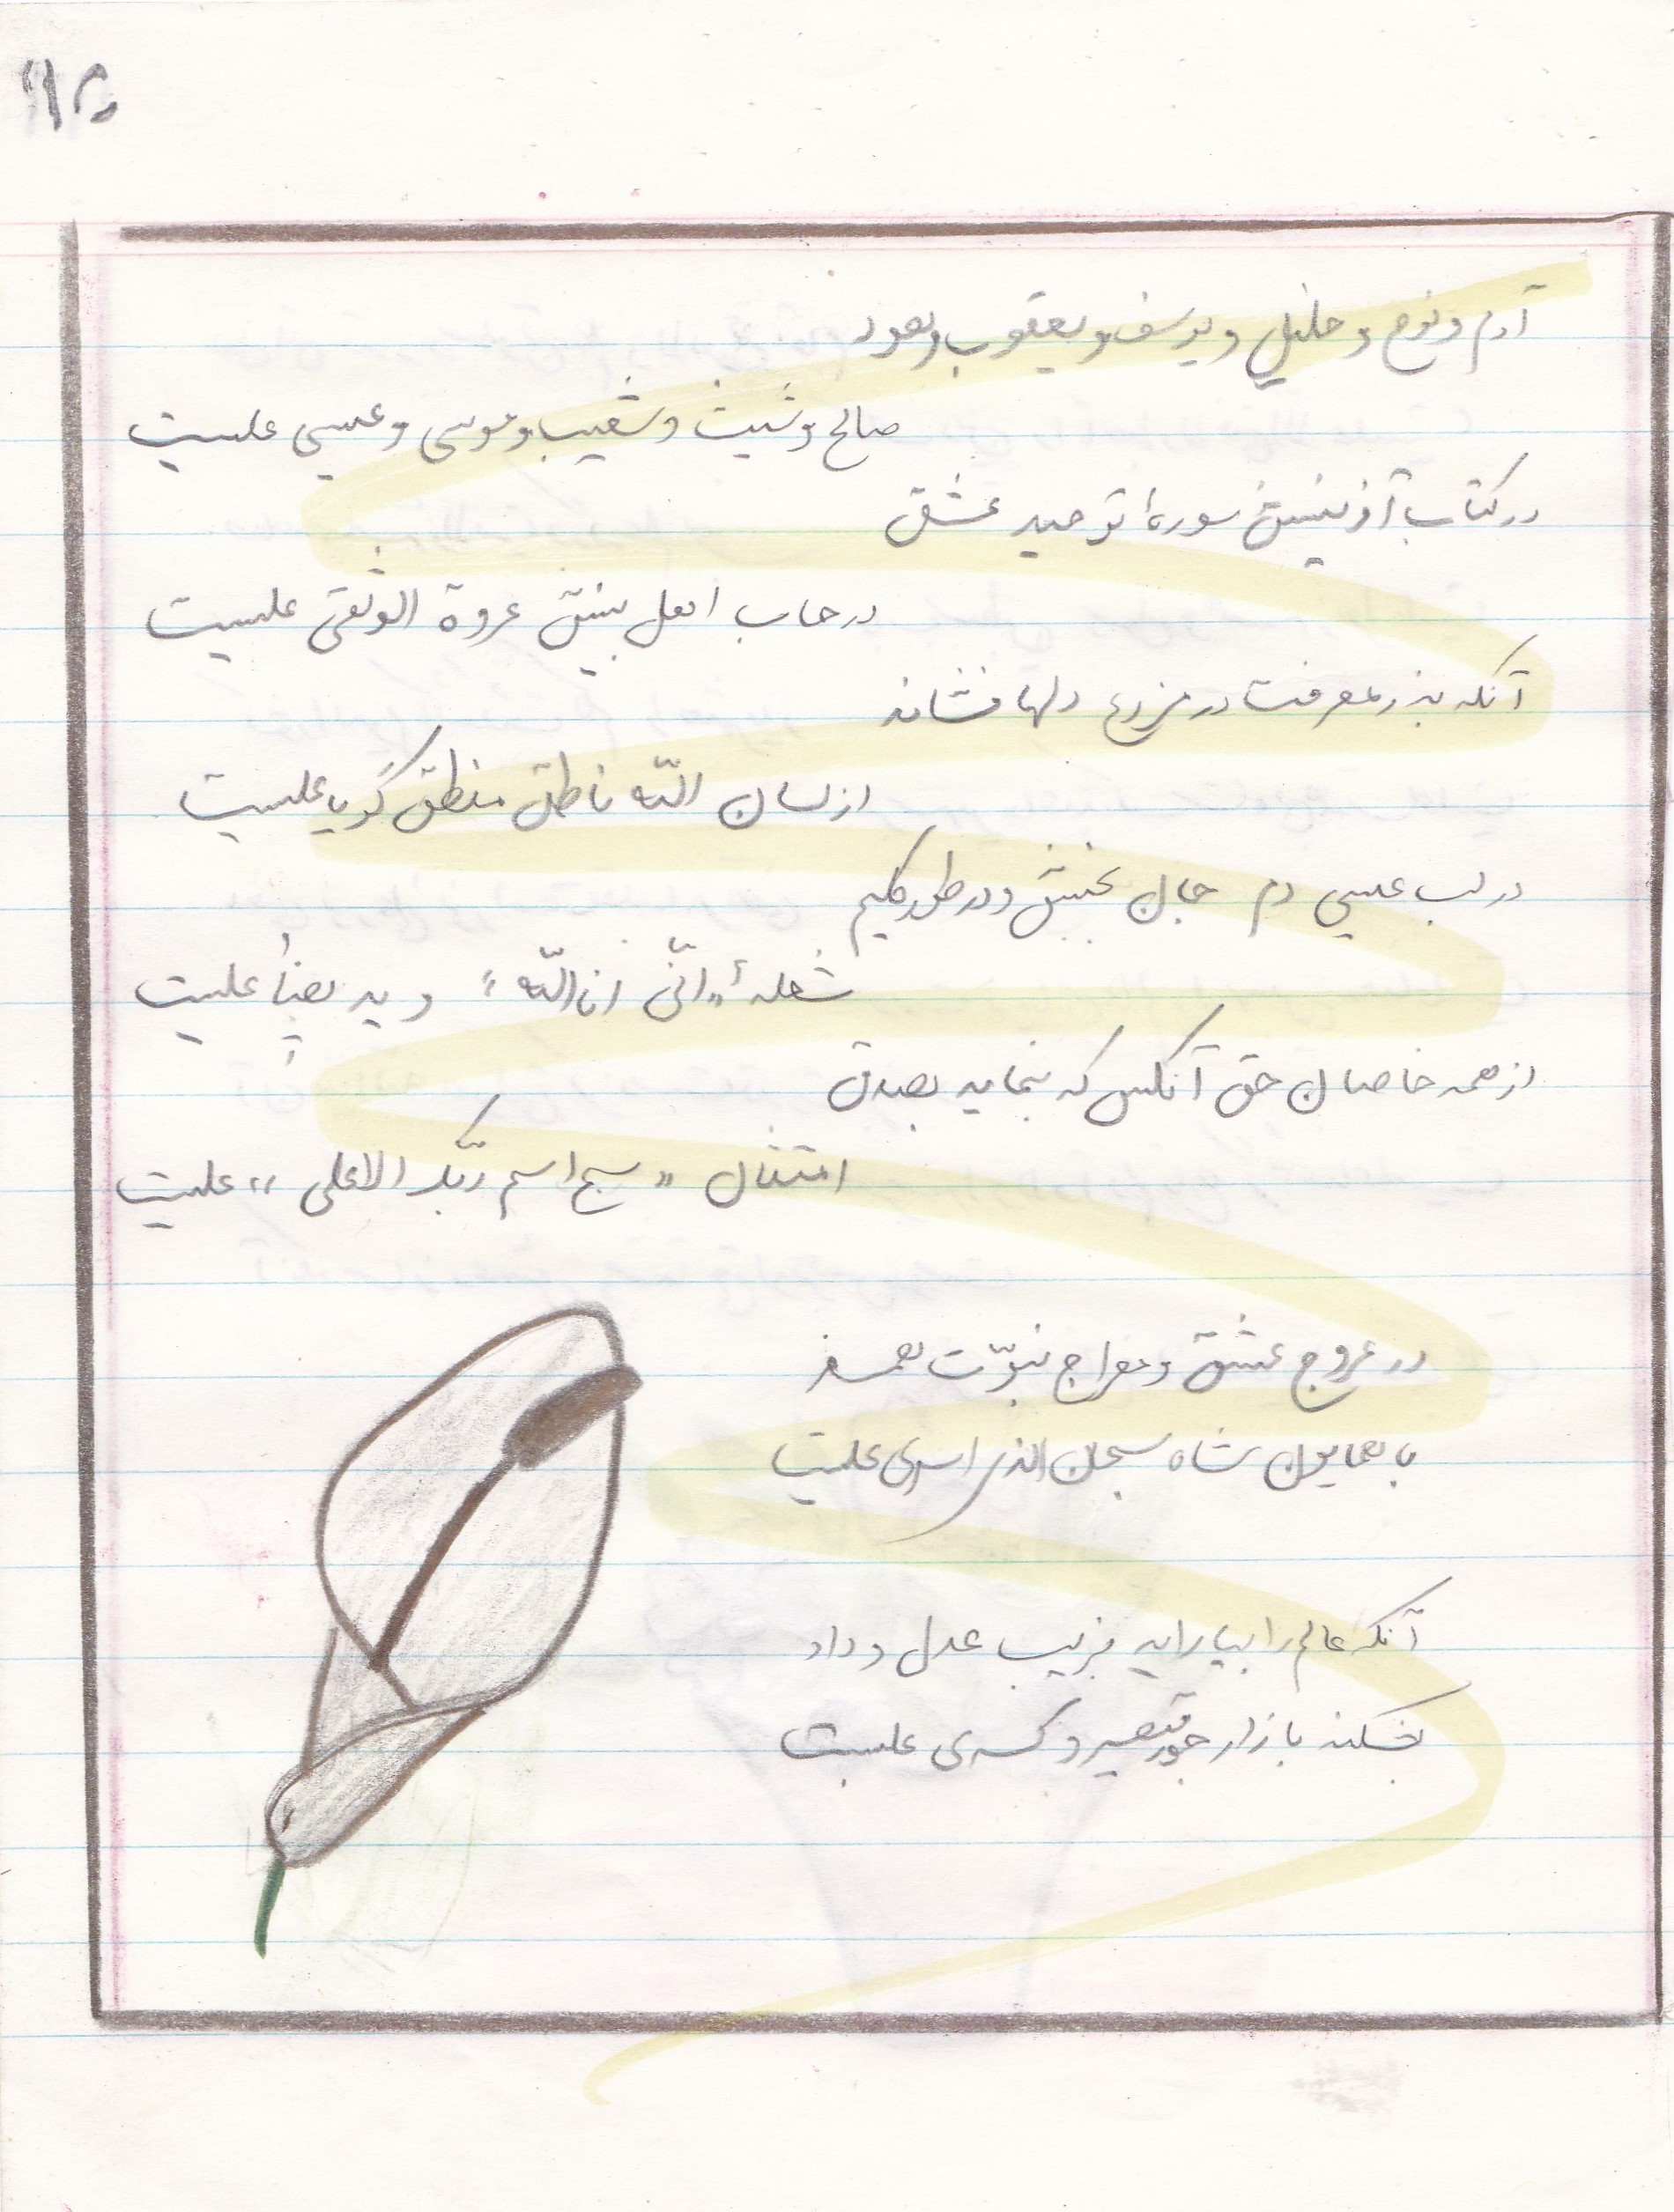 آدم و نوح و خلیل و یوسف و یعقوب و هود
صالح و شیث و شعیب و موسی و عیسی علیست
در کتاب آفرینش سورهٔ توحید عشق
در حساب اهل بینش عروة الوثقی علیست
آنکه بذر معرفت در مزرع دلها فشاند
از لسان اللّه ناطق منطق گویا علیست
در لب عیسی دم جان بخش و در طور کلیم
شعلهٔ «انّی انا اللّه» و ید بیضأ علیست
از همه خاصان حق آنکس که بنماید بصدق
امتثال «سبح اسم ربّک الاعلی» علیست
در عروج عشق و معراج نبوّت همسفر
با همایون شاه سبحان الذی اسری علیست
آنکه عالم را بیاراید بزیب عدل و داد
بشکند بازار جور قیصر و کسری علیست